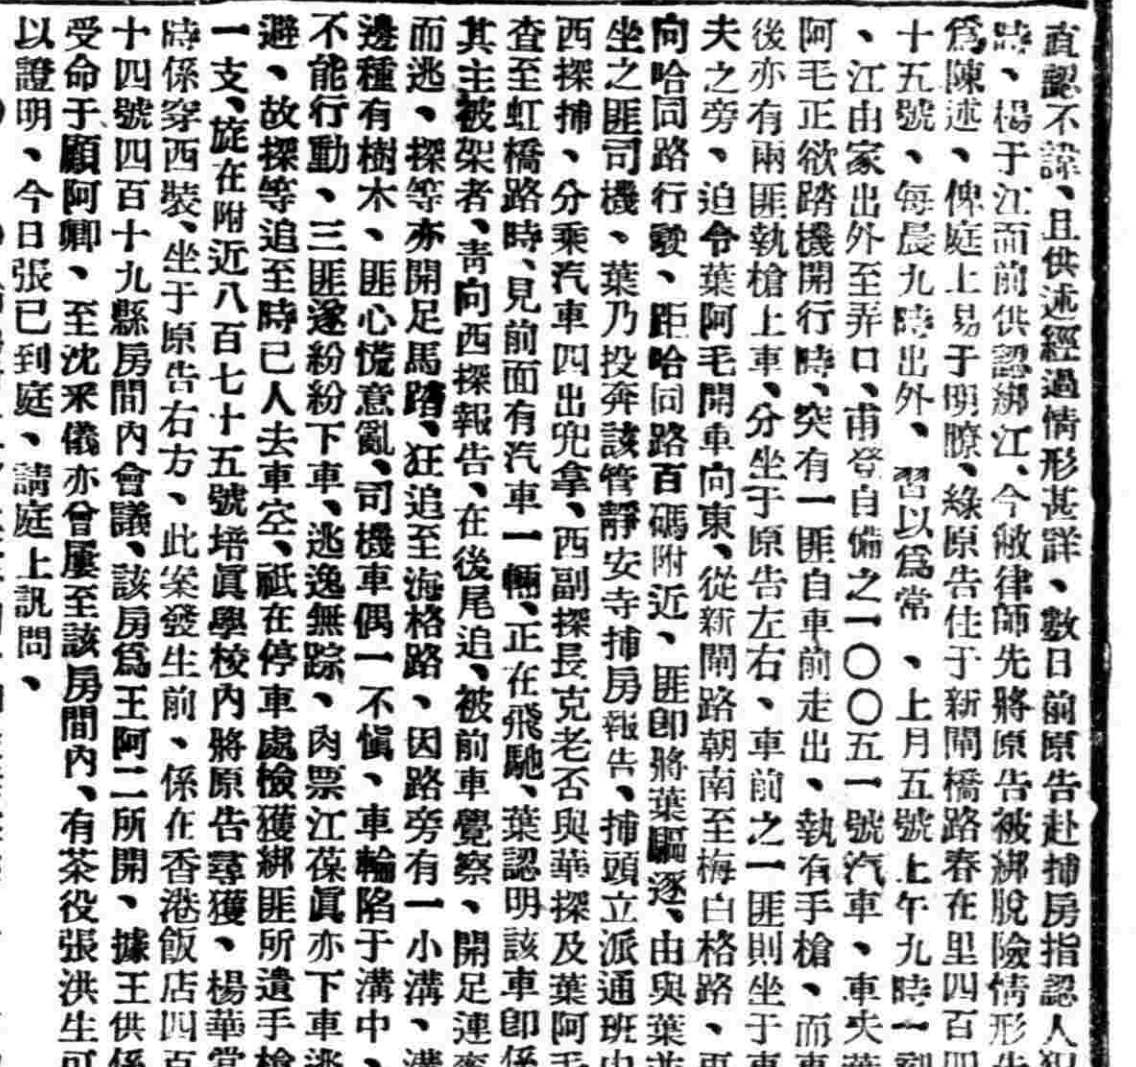 直認不諱、且供述經過情形甚詳、數日前原告赴捕房指認人犯
時、楊于江面前供認綁江、今敝律師先將原告被綁脫險情形先
爲陳述、俾庭上易于明瞭、緣原告住于新閘橋路春在里四百四
十五號、每晨九時出外、習以爲常、上月五號上午九時一刻
、江由家出外至弄口、甫登自備之一〇〇五一號汽車、車夫葉
阿毛正欲踏機開行時、突有一匪自車前走出、執有手槍、而車
後亦有兩匪執槍上車、分坐于原告左右、車前之一匪則坐于車
夫之旁、迫令葉阿毛開車向東、從新閘路朝南至梅白格路、再
向哈同路行駛、距哈同路百碼附近、匪即將葉驅逐、由與葉並
坐之匪司機、葉乃投奔該管靜安寺捕房報告、捕頭立派通班中
西探捕、分乘汽車四出兜拿、西副探長克老否與華探及葉阿毛
查至虹橋路時、見前面有汽車一輛、正在飛馳、葉認明該車即係
其主被架者、靑向西探報告、在後尾追、被前車覺察、開足連奔
而逃、探等亦開足馬蹐、狂追至海格路、因路旁有一小溝、溝
邊種有樹木、匪心慌意亂、司機車偶一不愼、車輪陷于溝中、
不能行動、三匪遂紛紛下車、逃逸無踪、肉票江葆眞亦下車逃
避、故探等追至時已人去車空、祇在停車處檢獲綁匪所遺手槍
一支、旋在附近八百七十五號培眞學校內將原告尋獲、楊華堂
時係穿西裝、坐于原告右方、此案發生前、係在香港飯店四百
十四號四百十九縣房間內會議、該房爲王阿二所開、據王供係
受命于顧阿卿、至沈釆儀亦曾屢至該房間內、有茶役張洪生可
以證明、今日張已到庭、請庭上訊問、